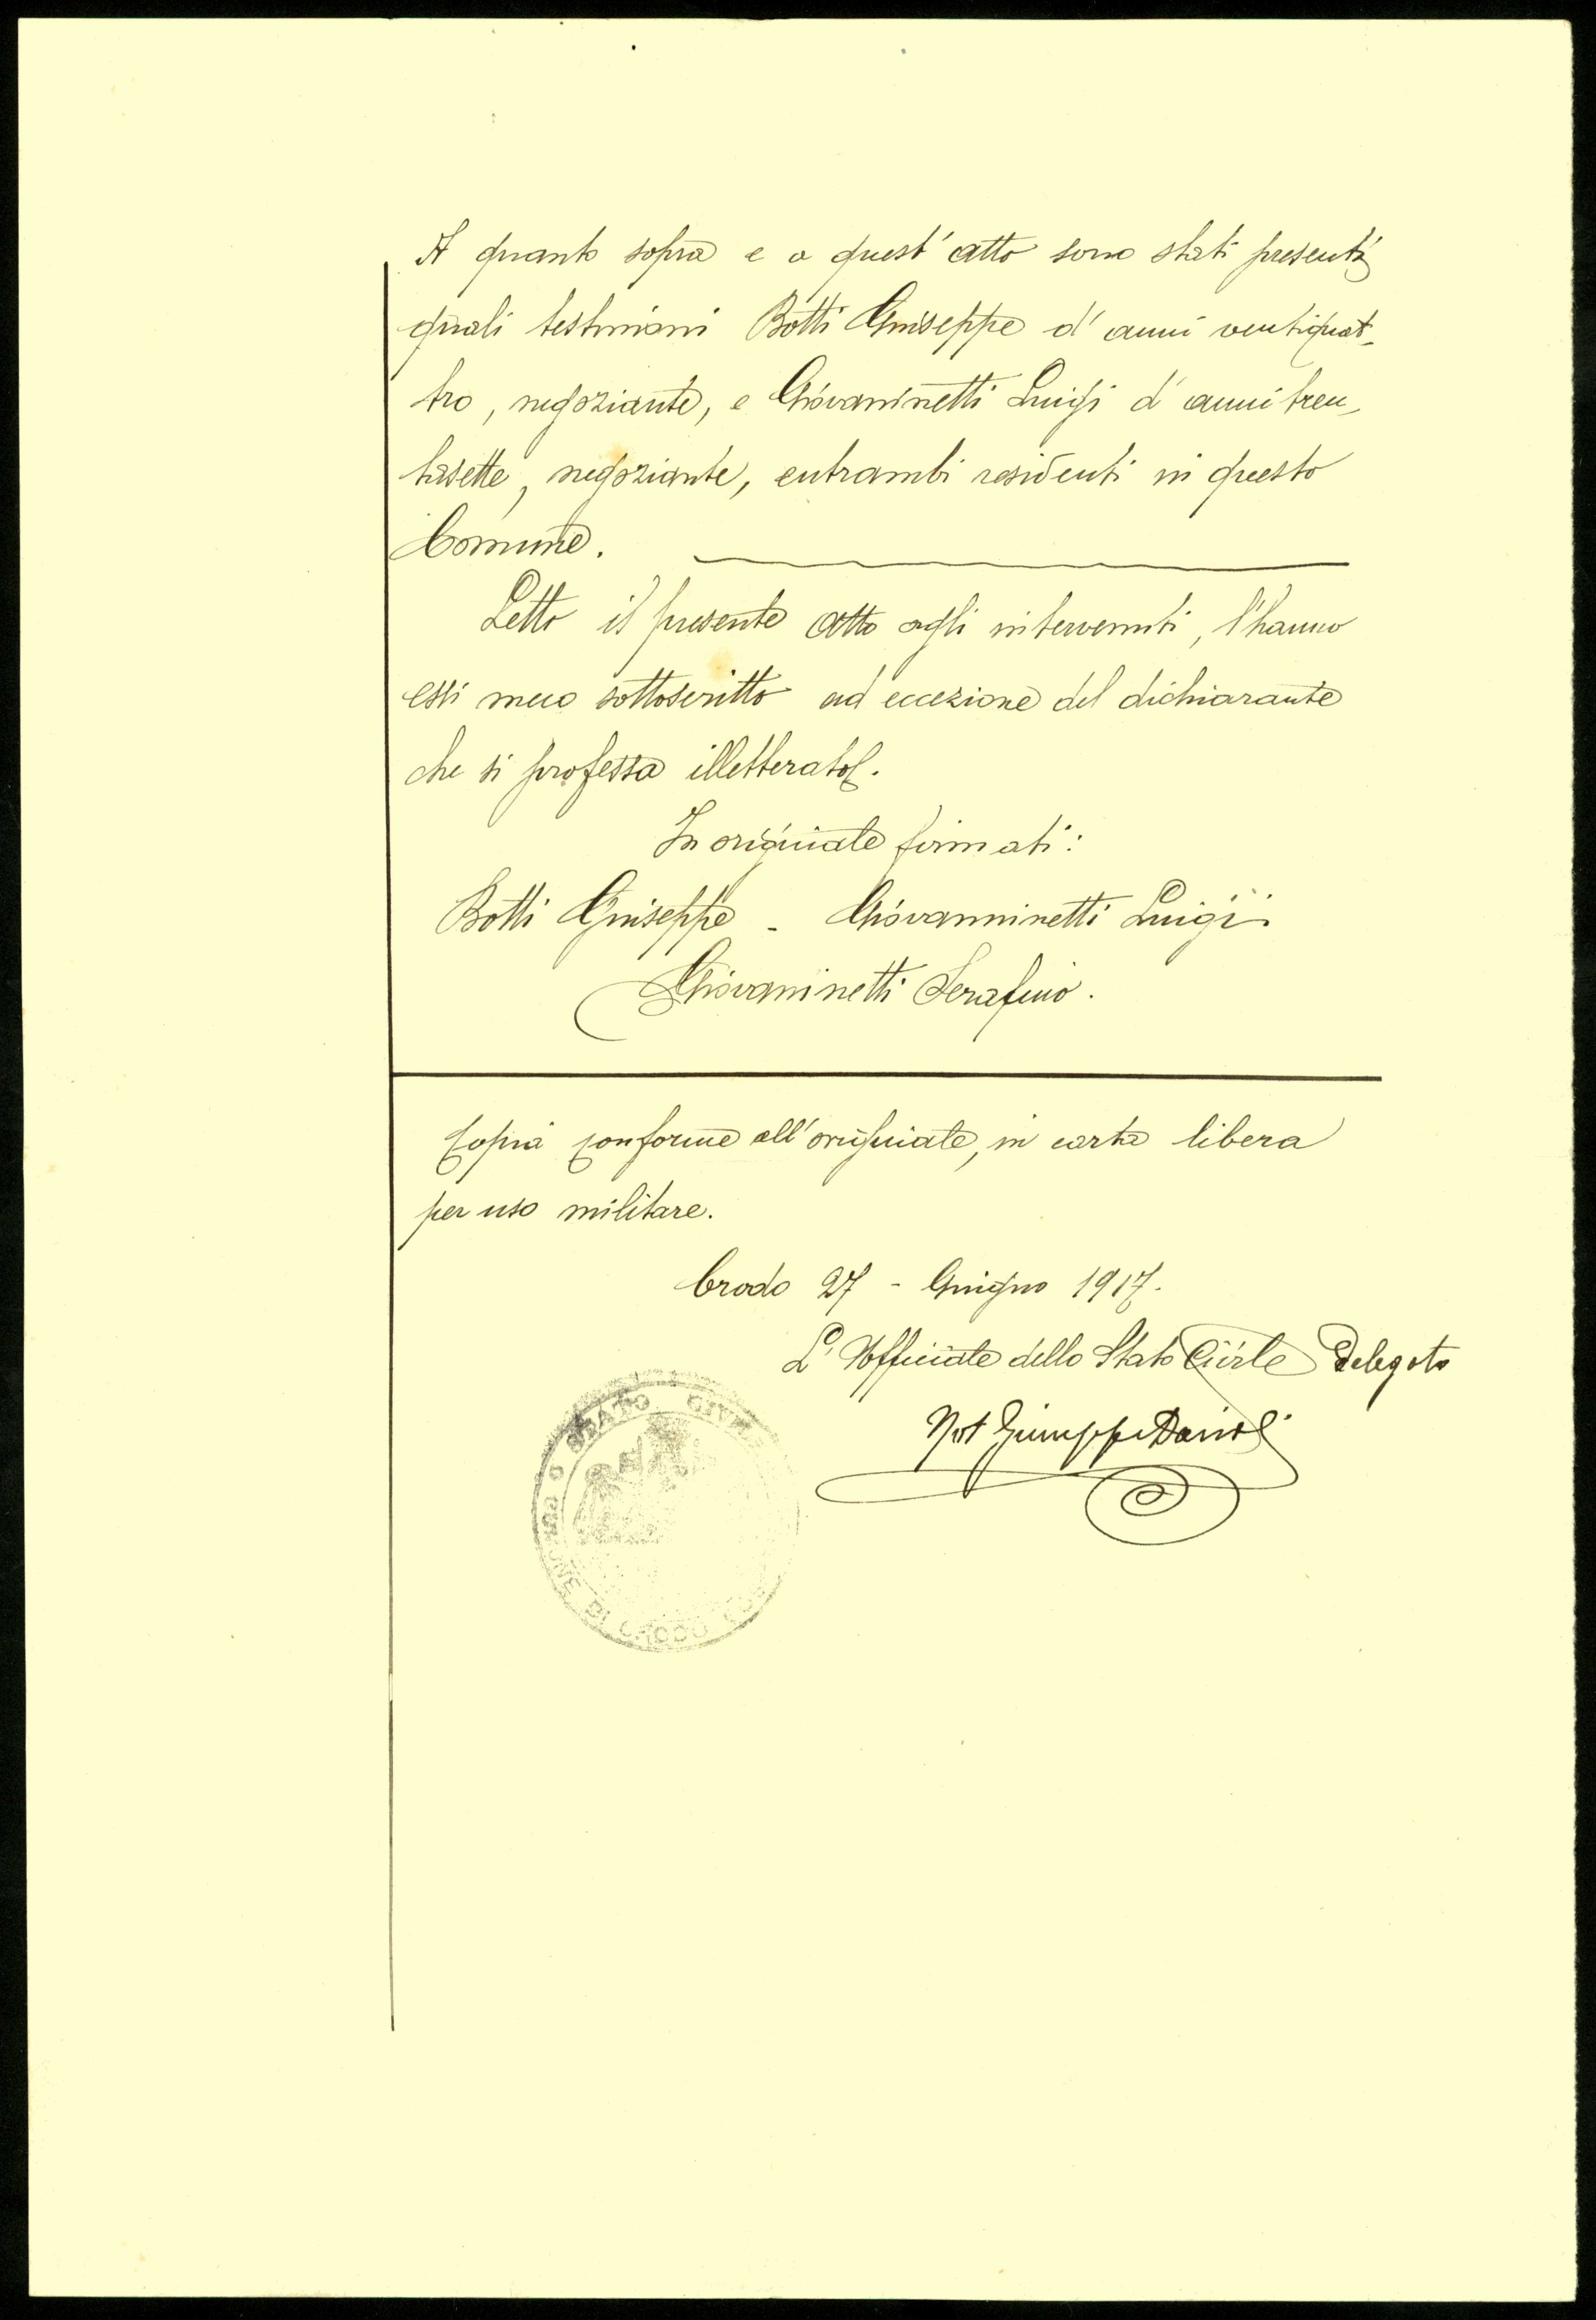 A quanto sopra e a quest'atto sono stati presenti
quali testimoni Botti Giuseppe d'anni ventiquat-
tro, negoziante, e Giovaninetti Luigi d'anni tren-
tasette, negoziante, entrambi residenti in questo
Comune.
Letto il presente atto agli intervenuti, l'hanno
essi meco sottoscritto ad eccezione del dichiarante
che si professa illetterato.
In originale firmati:
Botti Giuseppe - Giovanninetti Luigi
Giovaninetti Serafino.
Copia conforme all'originale, in carta libera
per uso militare.
Crodo 27 - Giugno 1917.
L'Ufficiale dello Stato Civile Delegato
Not Giuseppe
STATO CIVILE
COMUNE DI CRODO